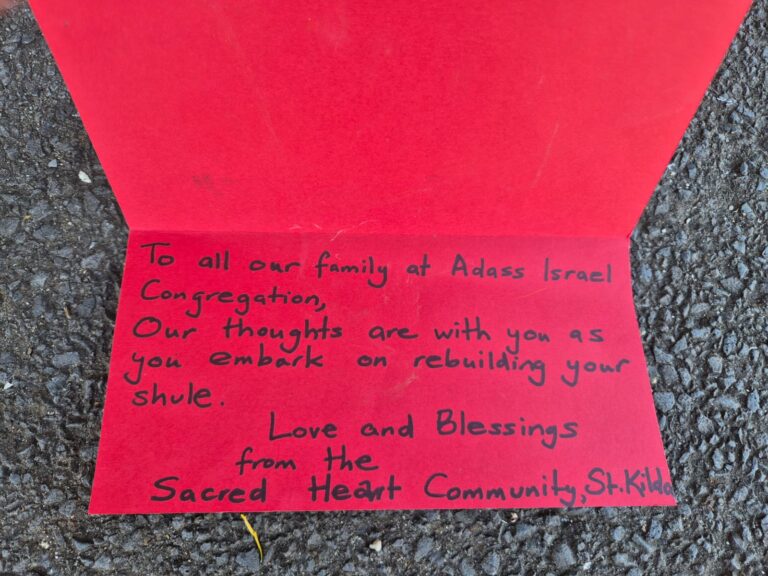 To all our family at Adass Israel
Congregation,
Our thoughts are with you as
you embark on rebuilding your
shule.
Love and Blessings
from the
Sacred Heart Community, St. Kilda